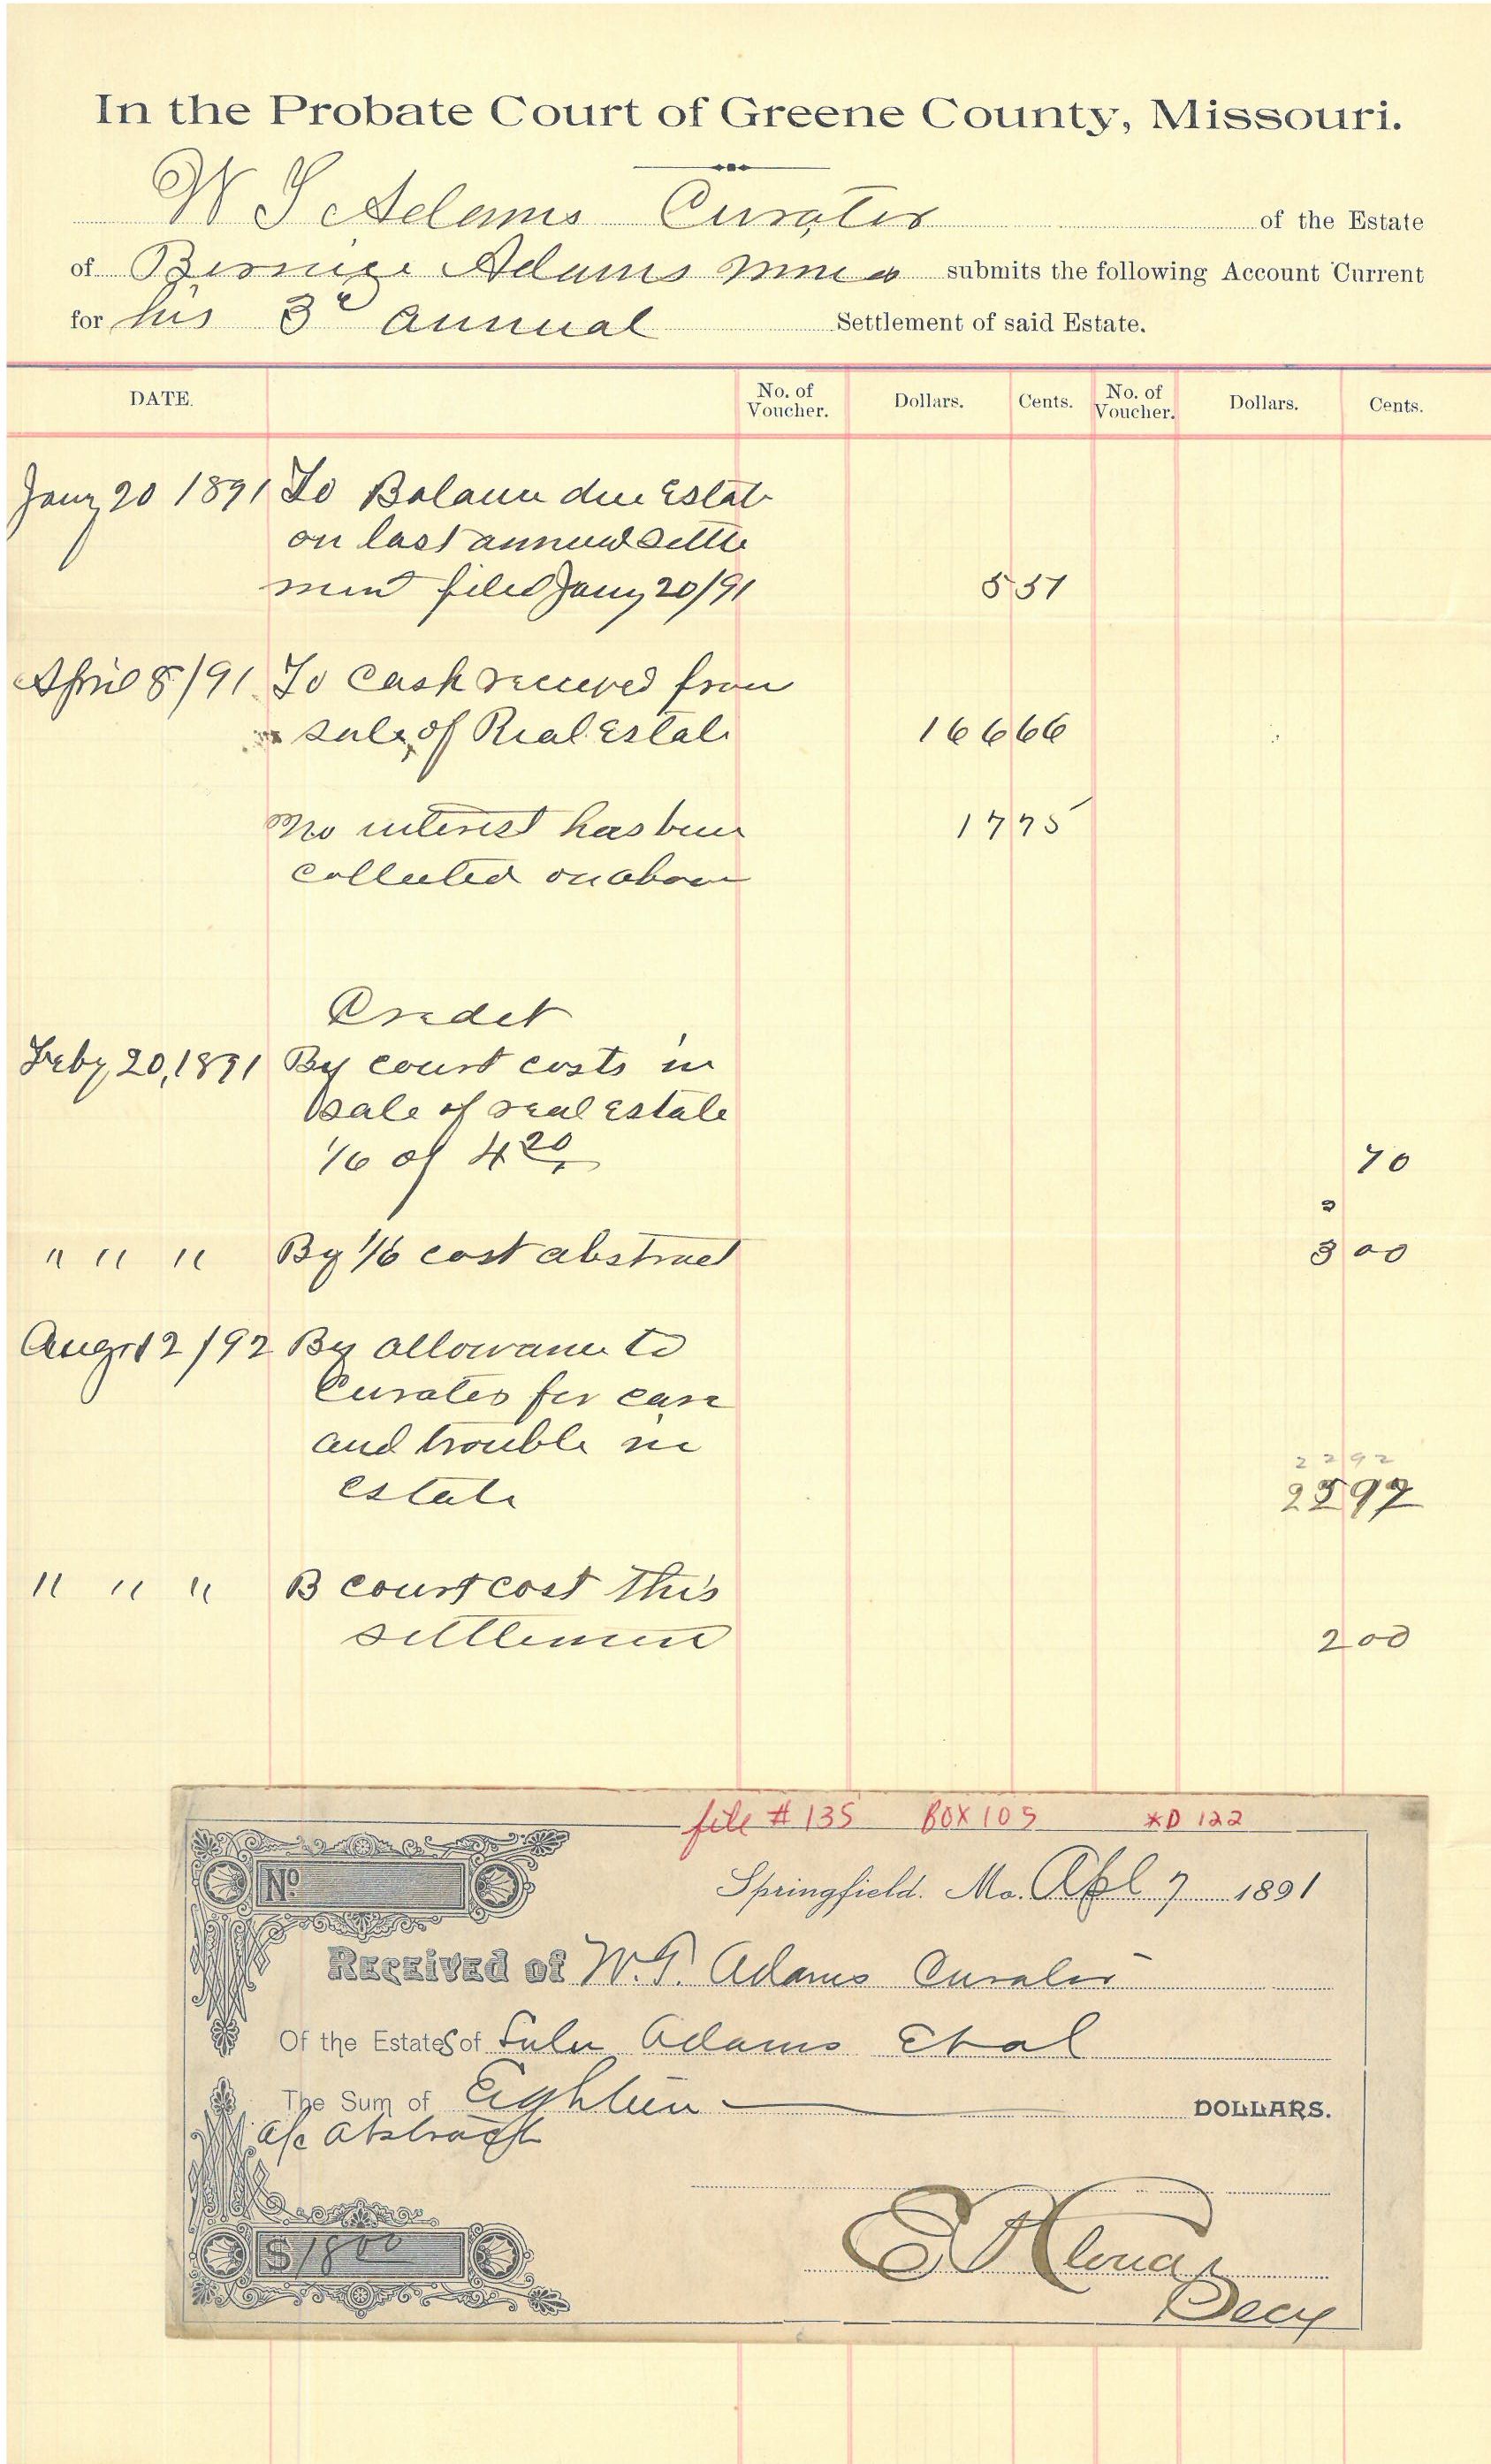 In the Probate Court of Greene County, Missouri.
W T Adams Curator of the Estate
of Bernice Adams minor submits the following Account Current
for his 3d annual Settlement of said Estate.
DATE. No. of Voucher. Dollars. Cents. No. of Voucher. Dollars. Cents.
Jany 20 1891 To Balance due Estate
on last annual settle
ment filed Jany 20/91 5 51
April 8/91 To Cash received from
sale of Real Estate 166 66
No interest has been 17 75
collected on above
Credit
Feby 20, 1891 By court costs in
sale of real estate
1/6 of 4 20 70
" " " By 1/6 cost abstract 3 00
Augst 2/92 By allowance to
Curator for care
and trouble in
estate 22 92
" " " B court cost this
settlement 2 00
file # 135 BOX 105 *D 122
No
Springfield. Mo. Apl 7 1891
Received of W.T. Adams Curator
Of the Estates of Lulu Adams Etal
The Sum of Eighteen DOLLARS.
a/c Abstract
$ 18 00
Secy